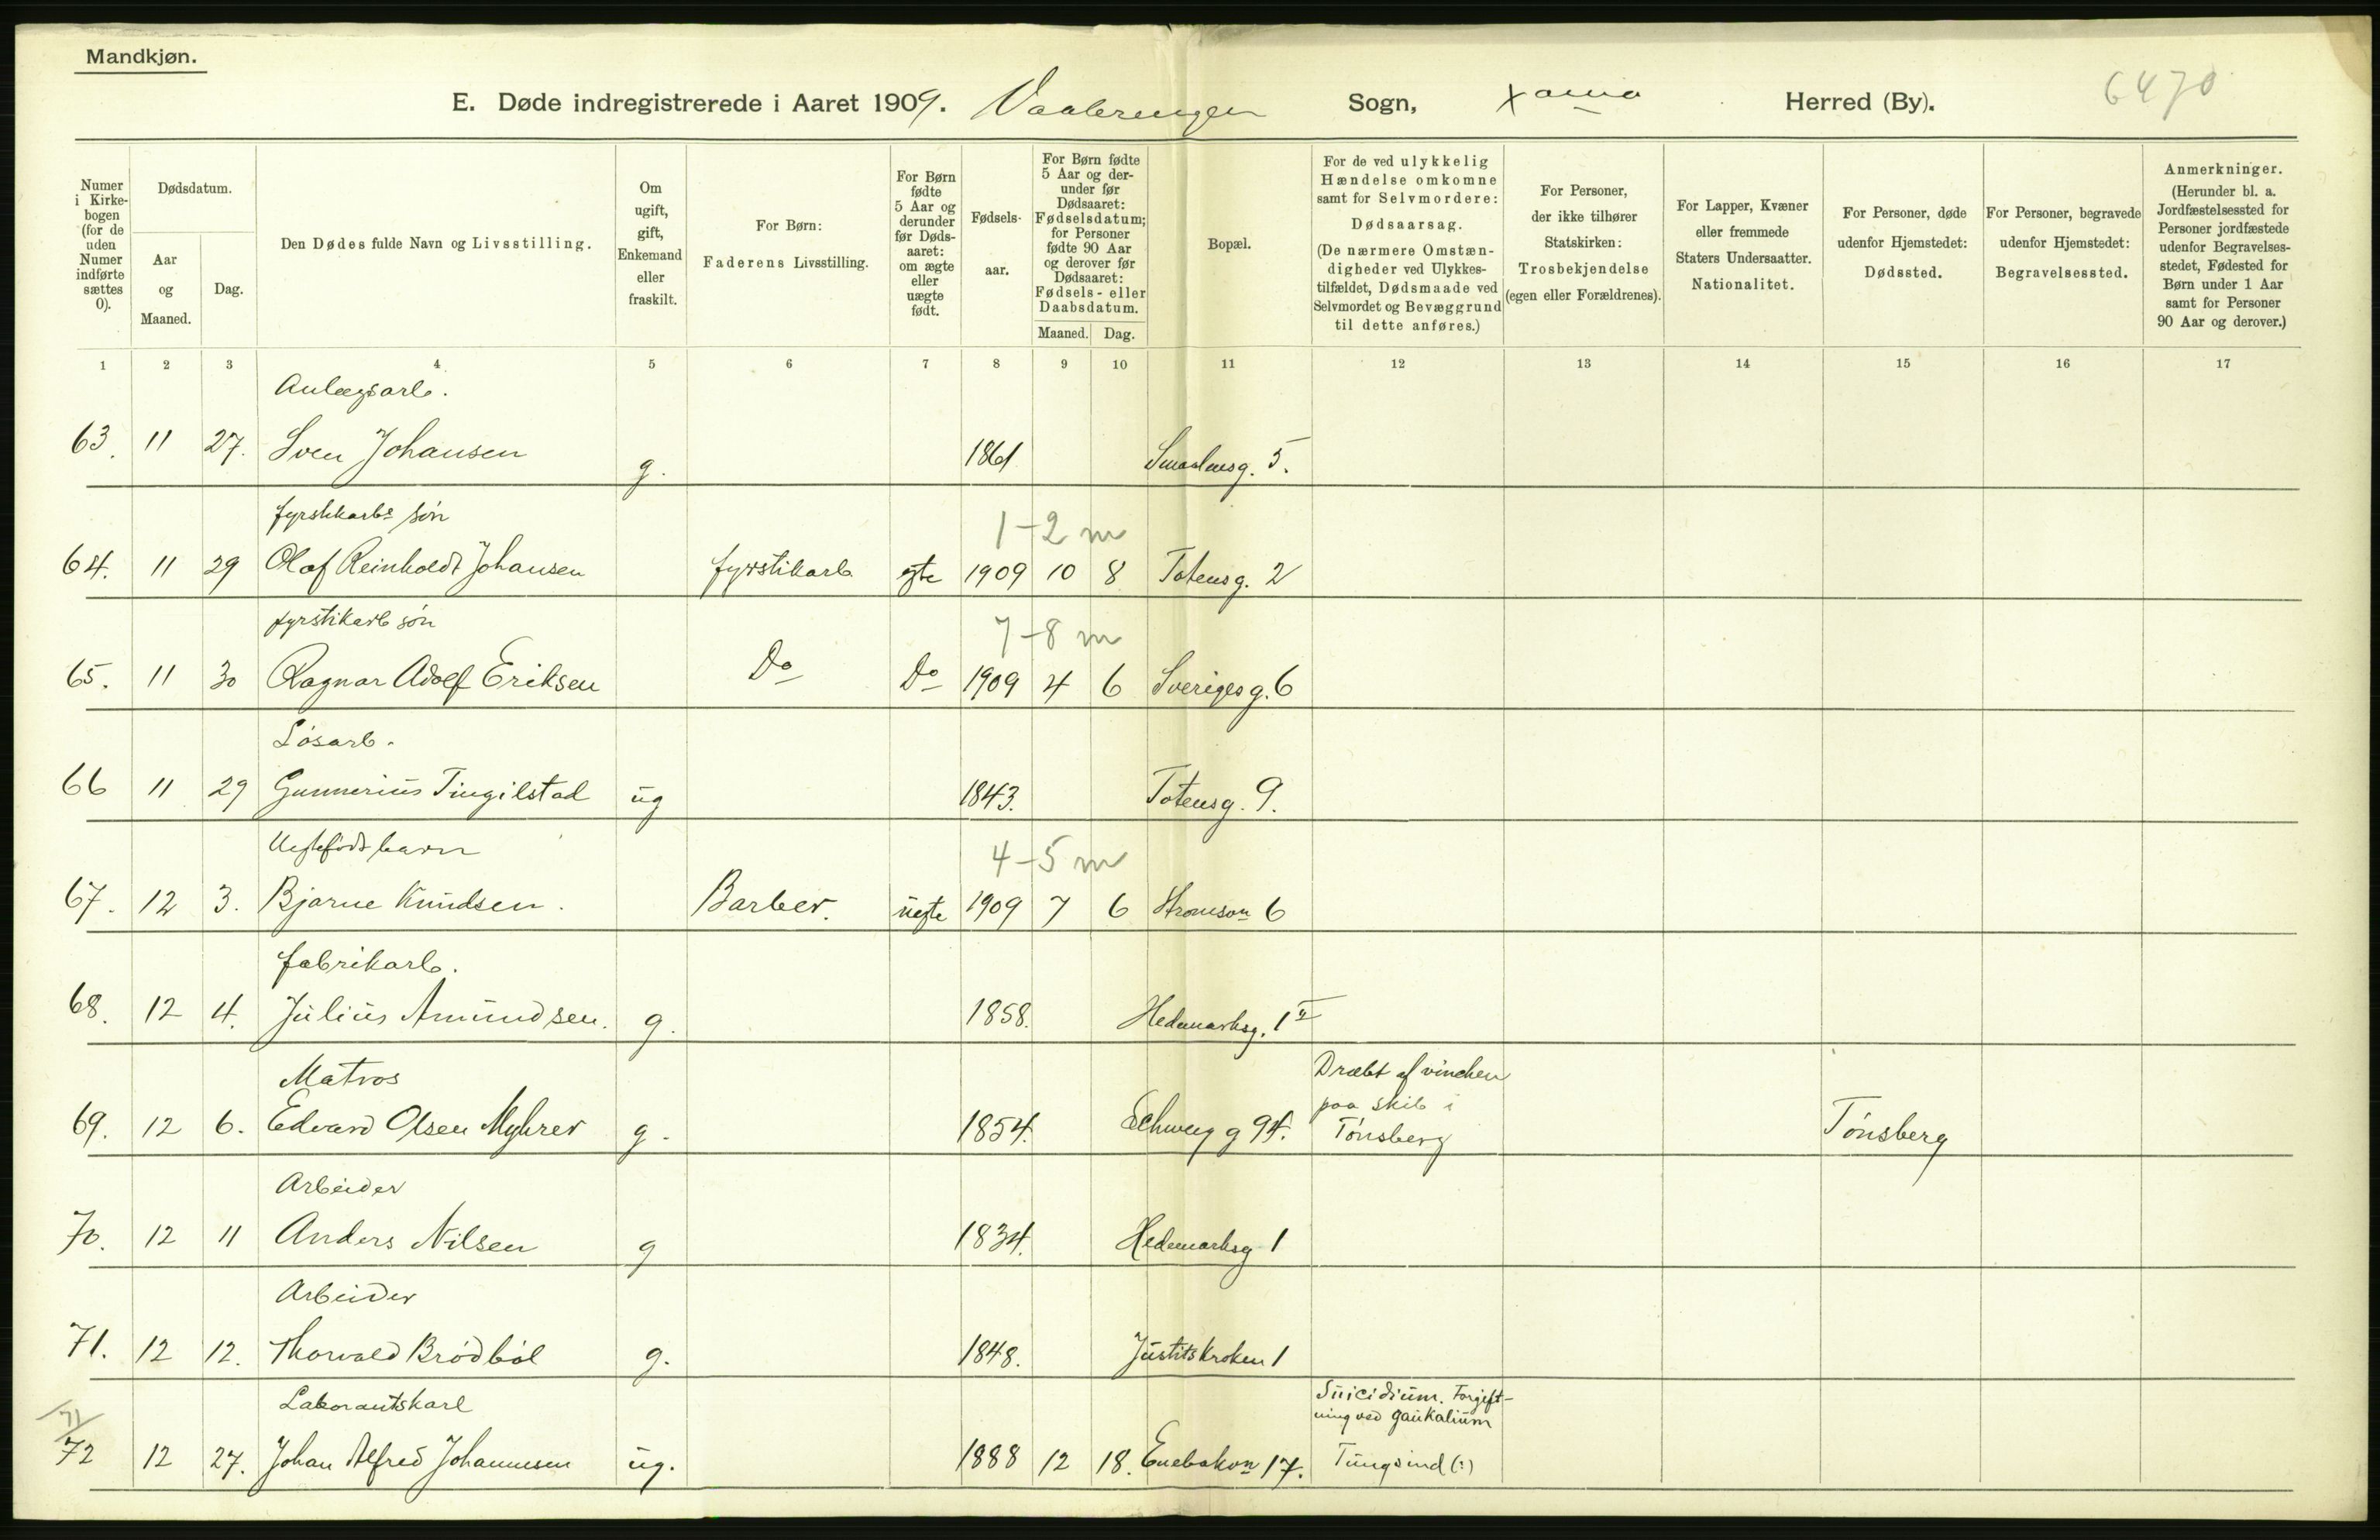 Mandkjøn.
E. Døde indregistrerede i Aaret 1909. Vaalerengen Sogn, Xania Herred (By). 6470
Numer i Kirkebogen (for de uden Numer indførte sættes 0).
Dødsdatum.
Aar og Maaned.
Dag.
Den Dødes fulde Navn og Livsstilling.
Om ugift, gift, Enkemand eller fraskilt.
For Børn: Faderens Livsstilling.
For Børn fødte 5 Aar og derunder før Dødsaaret: om ægte eller uægte født.
Fødselsaar.
For Børn fødte 5 Aar og derunder før Dødsaaret: Fødselsdatum; for Personer fødte 90 Aar og derover før Dødsaaret: Fødsels- eller Daabsdatum.
Maaned. Dag.
Bopæl.
For de ved ulykkelig Hændelse omkomne samt for Selvmordere: Dødsaarsag. (De nærmere Omstændigheder ved Ulykkestilfældet, Dødsmaade ved Selvmordet og Bevæggrund til dette anføres.)
For Personer, der ikke tilhører Statskirken: Trosbekjendelse (egen eller Forældrenes).
For Lapper, Kvæner eller fremmede Staters Undersaatter. Nationalitet.
For Personer, døde udenfor Hjemstedet: Dødssted.
For Personer, begravede udenfor Hjemstedet: Begravelsessted.
Anmerkninger. (Herunder bl. a. Jordfæstelsessted for Personer jordfæstede udenfor Begravelsesstedet, Fødested for Børn under 1 Aar samt for Personer 90 Aar og derover.)
1 2 3 4 5 6 7 8 9 10 11 12 13 14 15 16 17
Anlægsarb.
63. 11 27. Sven Johansen g. 1861 Smaalensg. 5.
fyrstikarbs søn
1-2 m
64. 11 29 Olaf Reinholdt Johansen fyrstikarb egte 1909 10 8 Totensg. 2
fyrstikarb søn
7-8 m
65. 11 30 Ragnar Adolf Eriksen Do Do 1909 4 6 Sverigesg. 6
Løsarb.
66 11 29 Gunnerius Tingilstad ug 1843. Totensg. 9.
Uegtefødt barn
4-5 m
67. 12 3. Bjarne Knudsen. Barber. uegte 1909 7 6 Strømsvn 6
fabrikarb.
68. 12 4. Julius Amundsen. g. 1858. Hedemarksg. 1 II
Matros
Dræbt af vinchen
paa skib i
69. 12 6. Edvard Olsen Myhrer g. 1854. Schweig g 94. Tønsberg Tønsberg
Arbeider
70. 12 11 Anders Nilsen g 1834. Hedemarksg 1
Arbeider
71. 12 12. Thorvald Brødbøl g. 1848. Justitskroken 1
Laborantskarl
Suicidium. Forgift-
ning ved Zankalium
71
72 12 27. Johan Alfred Johannesen ug. 1888 12 18. Enebakvn 17. Tungsind (?)